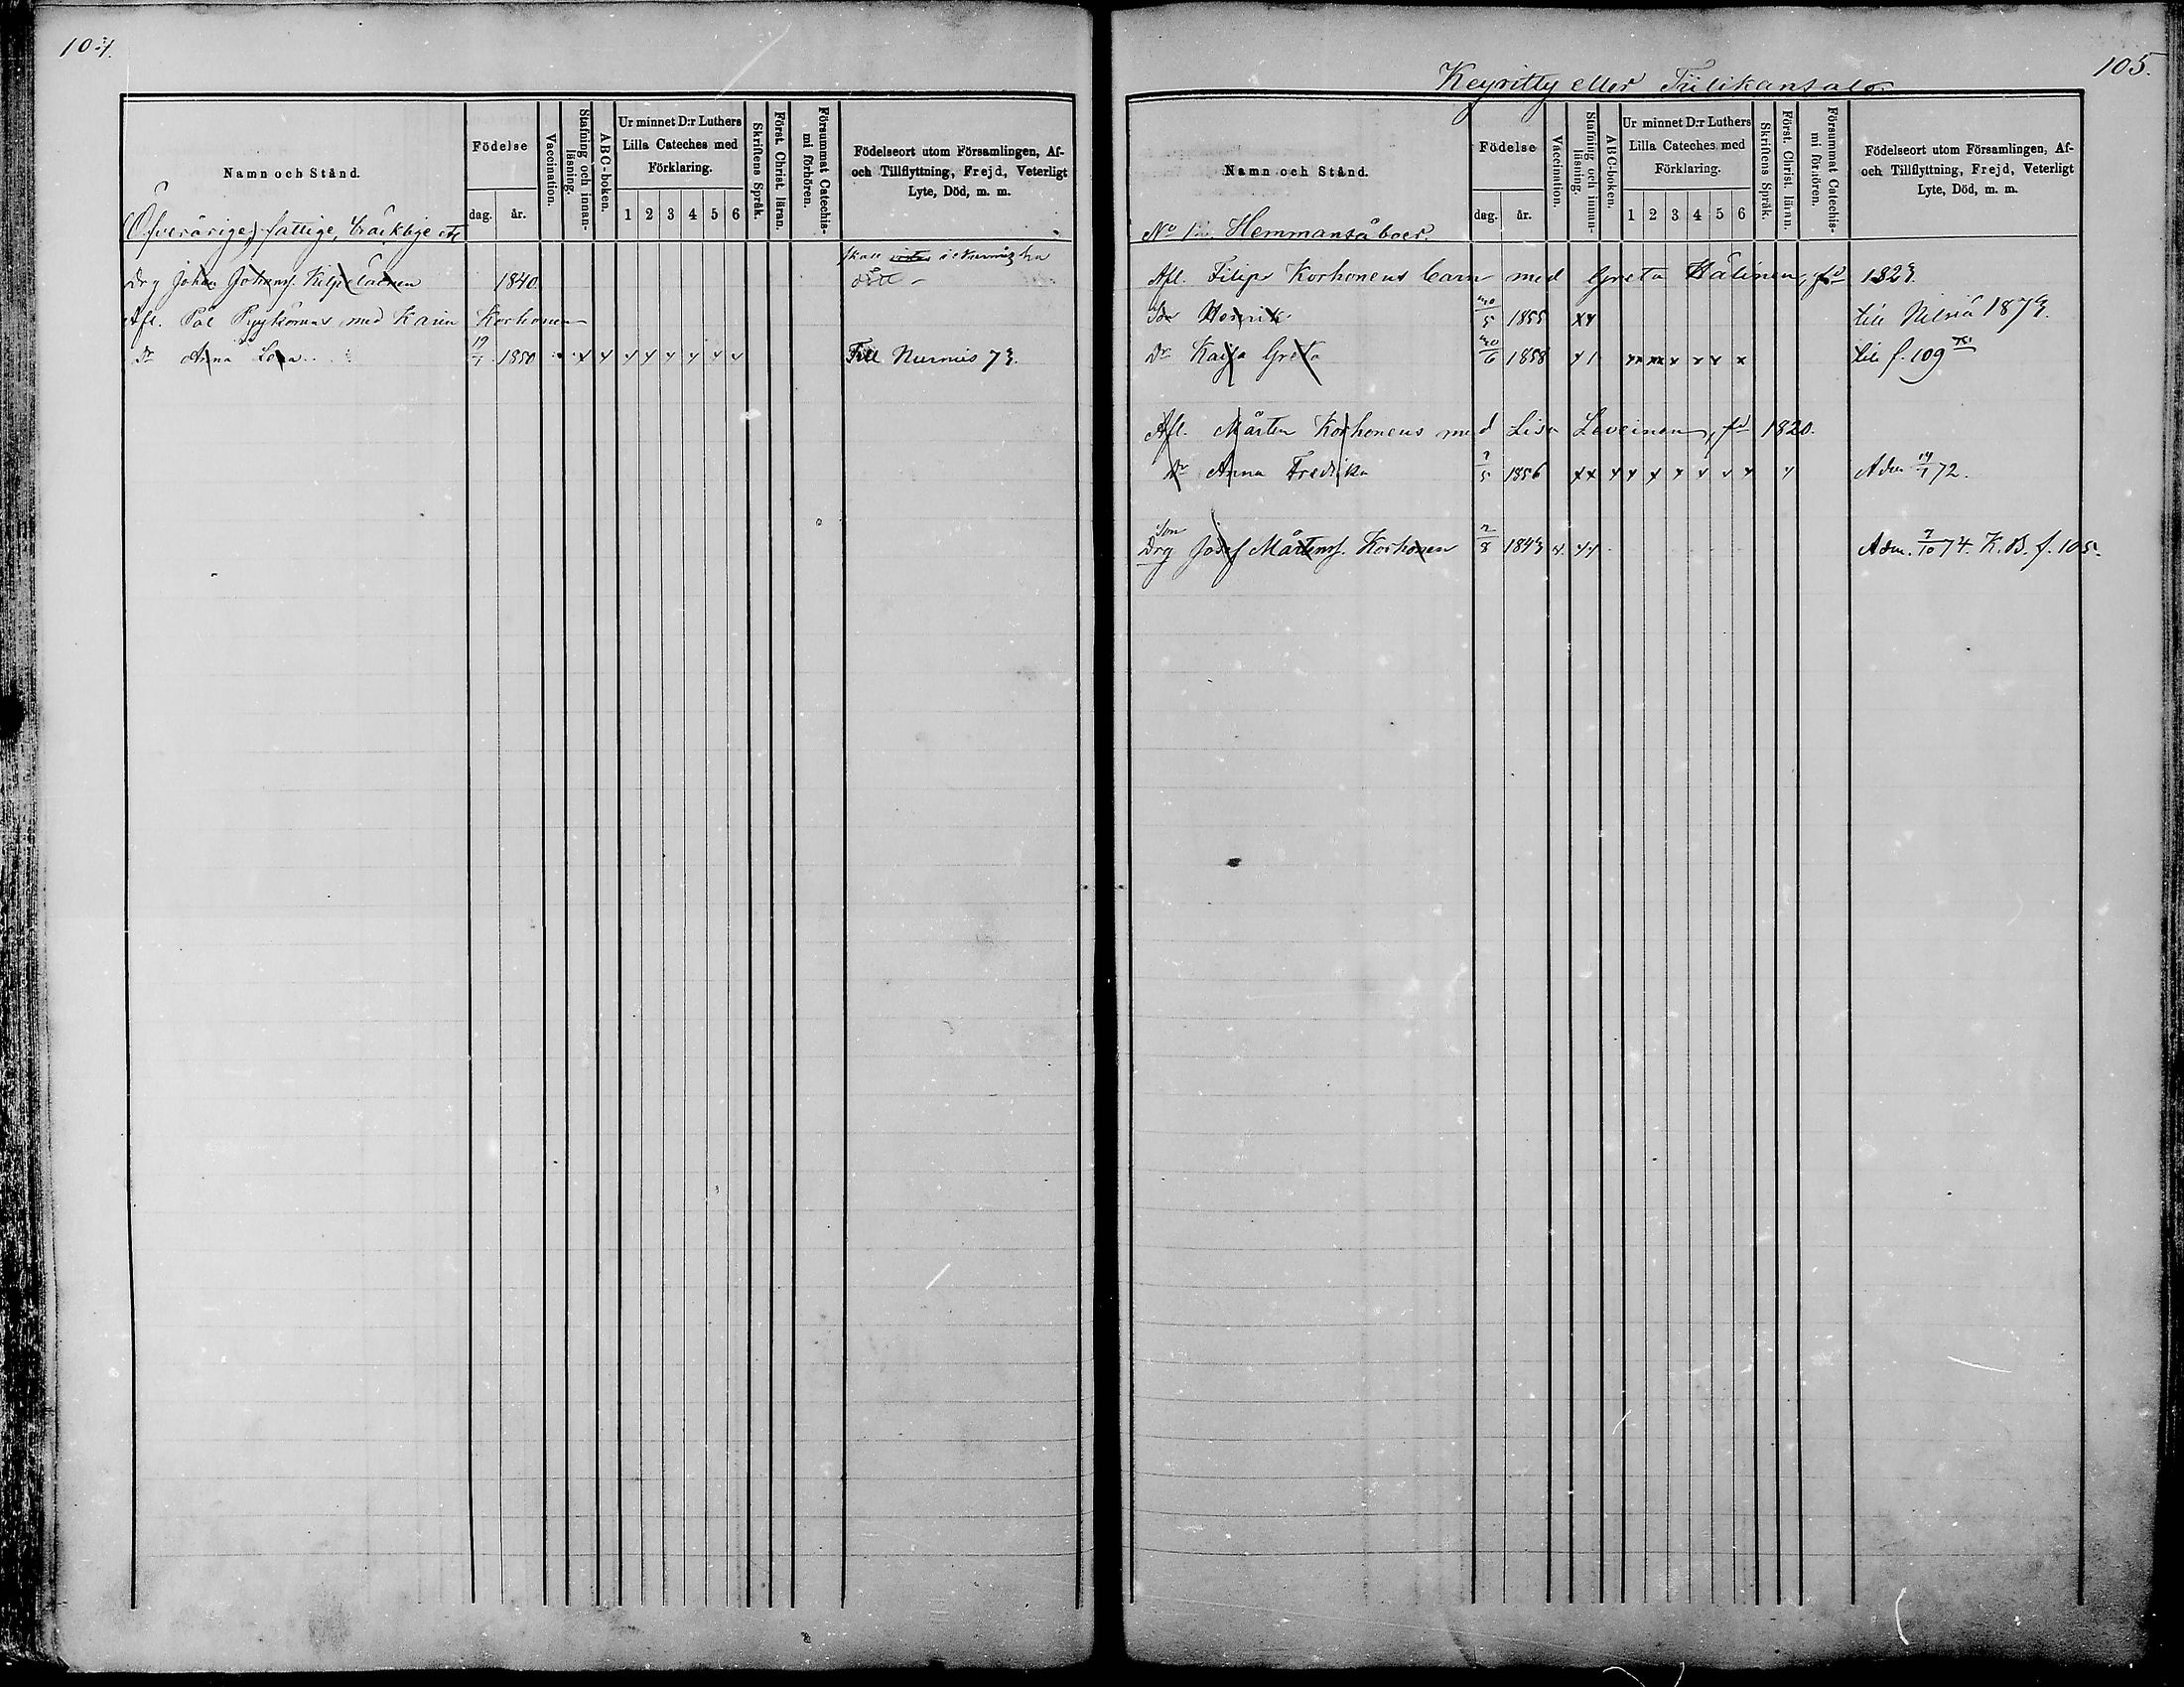 104.
Namn och Stånd.
Födelse
dag.
år.
Vaccination.
Stafning och innan-
läsning.
ABC-boken.
Ur minnet D:r Luthers
Lilla Cateches med
Förklaring.
1 2 3 4 5 6
Skriftens Språk.
Först. Christ. läran.
Försummat Catechis-
mi förhören.
Födelseort utom Församlingen, Af-
och Tillflyttning, Frejd, Veterligt
Lyte, Död, m. m.
Öfverårige, fattige, bräcklige etc
skall i Nurmis ha
Drg Johan Johanss. Kilpeläinen 1840.
Afl. Pål Ryykönens med Karin Korhonen
Dr Anna Lena 1850 x x x x x x x x Till Nurmis 73.
105.
Keyritty eller Tiilikansalo.
Namn och Stånd.
Födelse
dag.
år.
Vaccination.
Stafning och innan-
läsning.
ABC-boken.
Ur minnet D:r Luthers
Lilla Cateches med
Förklaring.
1 2 3 4 5 6
Skriftens Språk.
Först. Christ. läran.
Försummat Catechis-
mi förhören.
Födelseort utom Församlingen, Af-
och Tillflyttning, Frejd, Veterligt
Lyte, Död, m. m.
No 1 Hemmansåboer.
Afl. Filip Korhonens barn med Greta Hålinen, fd 1823.
Son Henrik 1855 xx till Nilsiä 1873.
Dr Kaisa Greta 1858 x 1 xx xx x x x x till f. 109
Afl. Mårten Korhonens med Lisa Leveinen, fd 1820.
Dr Anna Fredika 7/5 1856 xx x x x x x x x x Adm 14/1 72.
Son
Drg Josef Mårtenss. Korhonen 7/8 1843 v. xx Adm. 7/10 74. K.B. f. 105.